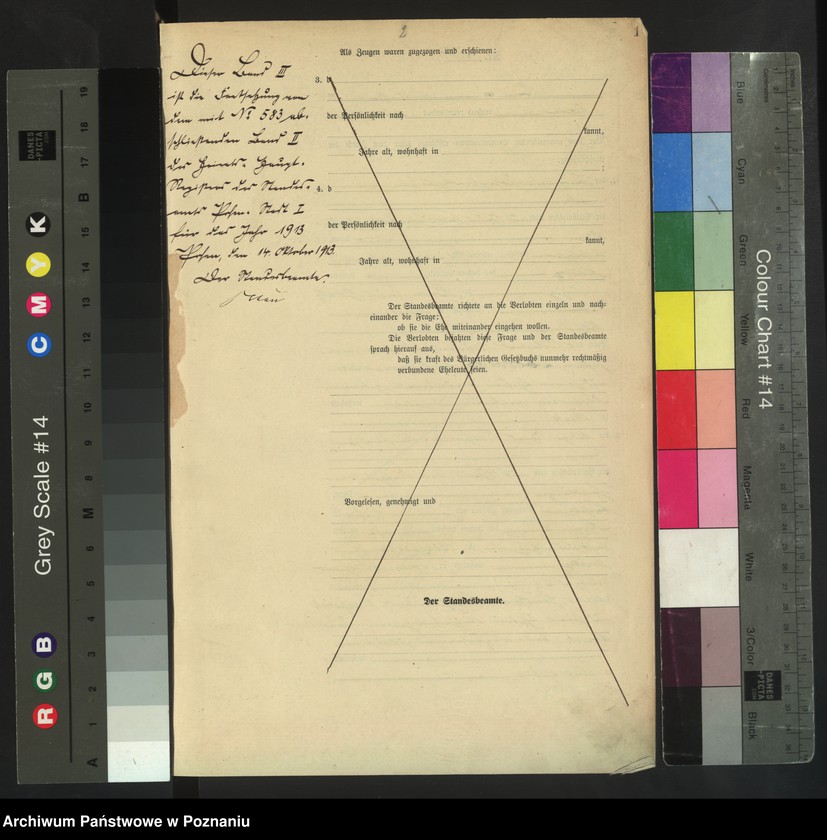 2
1
Dieser Band III
ist die Fortsetzung von
dem mit No 583 ab-
schließenden Band II
des Heirats-Haupt-
Registers des Standes-
amts Posen-Stadt I
für das Jahr 1913
Posen, den 14. Oktober 1913.
Der Standesbeamte.
Als Zeugen waren zugezogen und erschienen:
3. d
der Persönlichkeit nach
kannt,
Jahre alt, wohnhaft in
;
4. d
der Persönlichkeit nach
kannt,
Jahre alt, wohnhaft in
Der Standesbeamte richtete an die Verlobten einzeln und nach-
einander die Frage:
ob sie die Ehe miteinander eingehen wollen.
Die Verlobten bejahten diese Frage und der Standesbeamte
sprach hierauf aus,
daß sie kraft des Bürgerlichen Gesetzbuchs nunmehr rechtmäßig
verbundene Eheleute seien.
Vorgelesen, genehmigt und
Der Standesbeamte.
Grey Scale #14
R G B
C M Y K
A 1 2 3 4 5 6 M 8 9 10 11 12 13 14 15 B 17 18 19
DANES
-PICTA
.COM
Colour Chart #14
Blue
Cyan
Green
Yellow
Red
Magenta
White
3/Color
Black
DANES
-PICTA
.COM
Archiwum Państwowe w Poznaniu